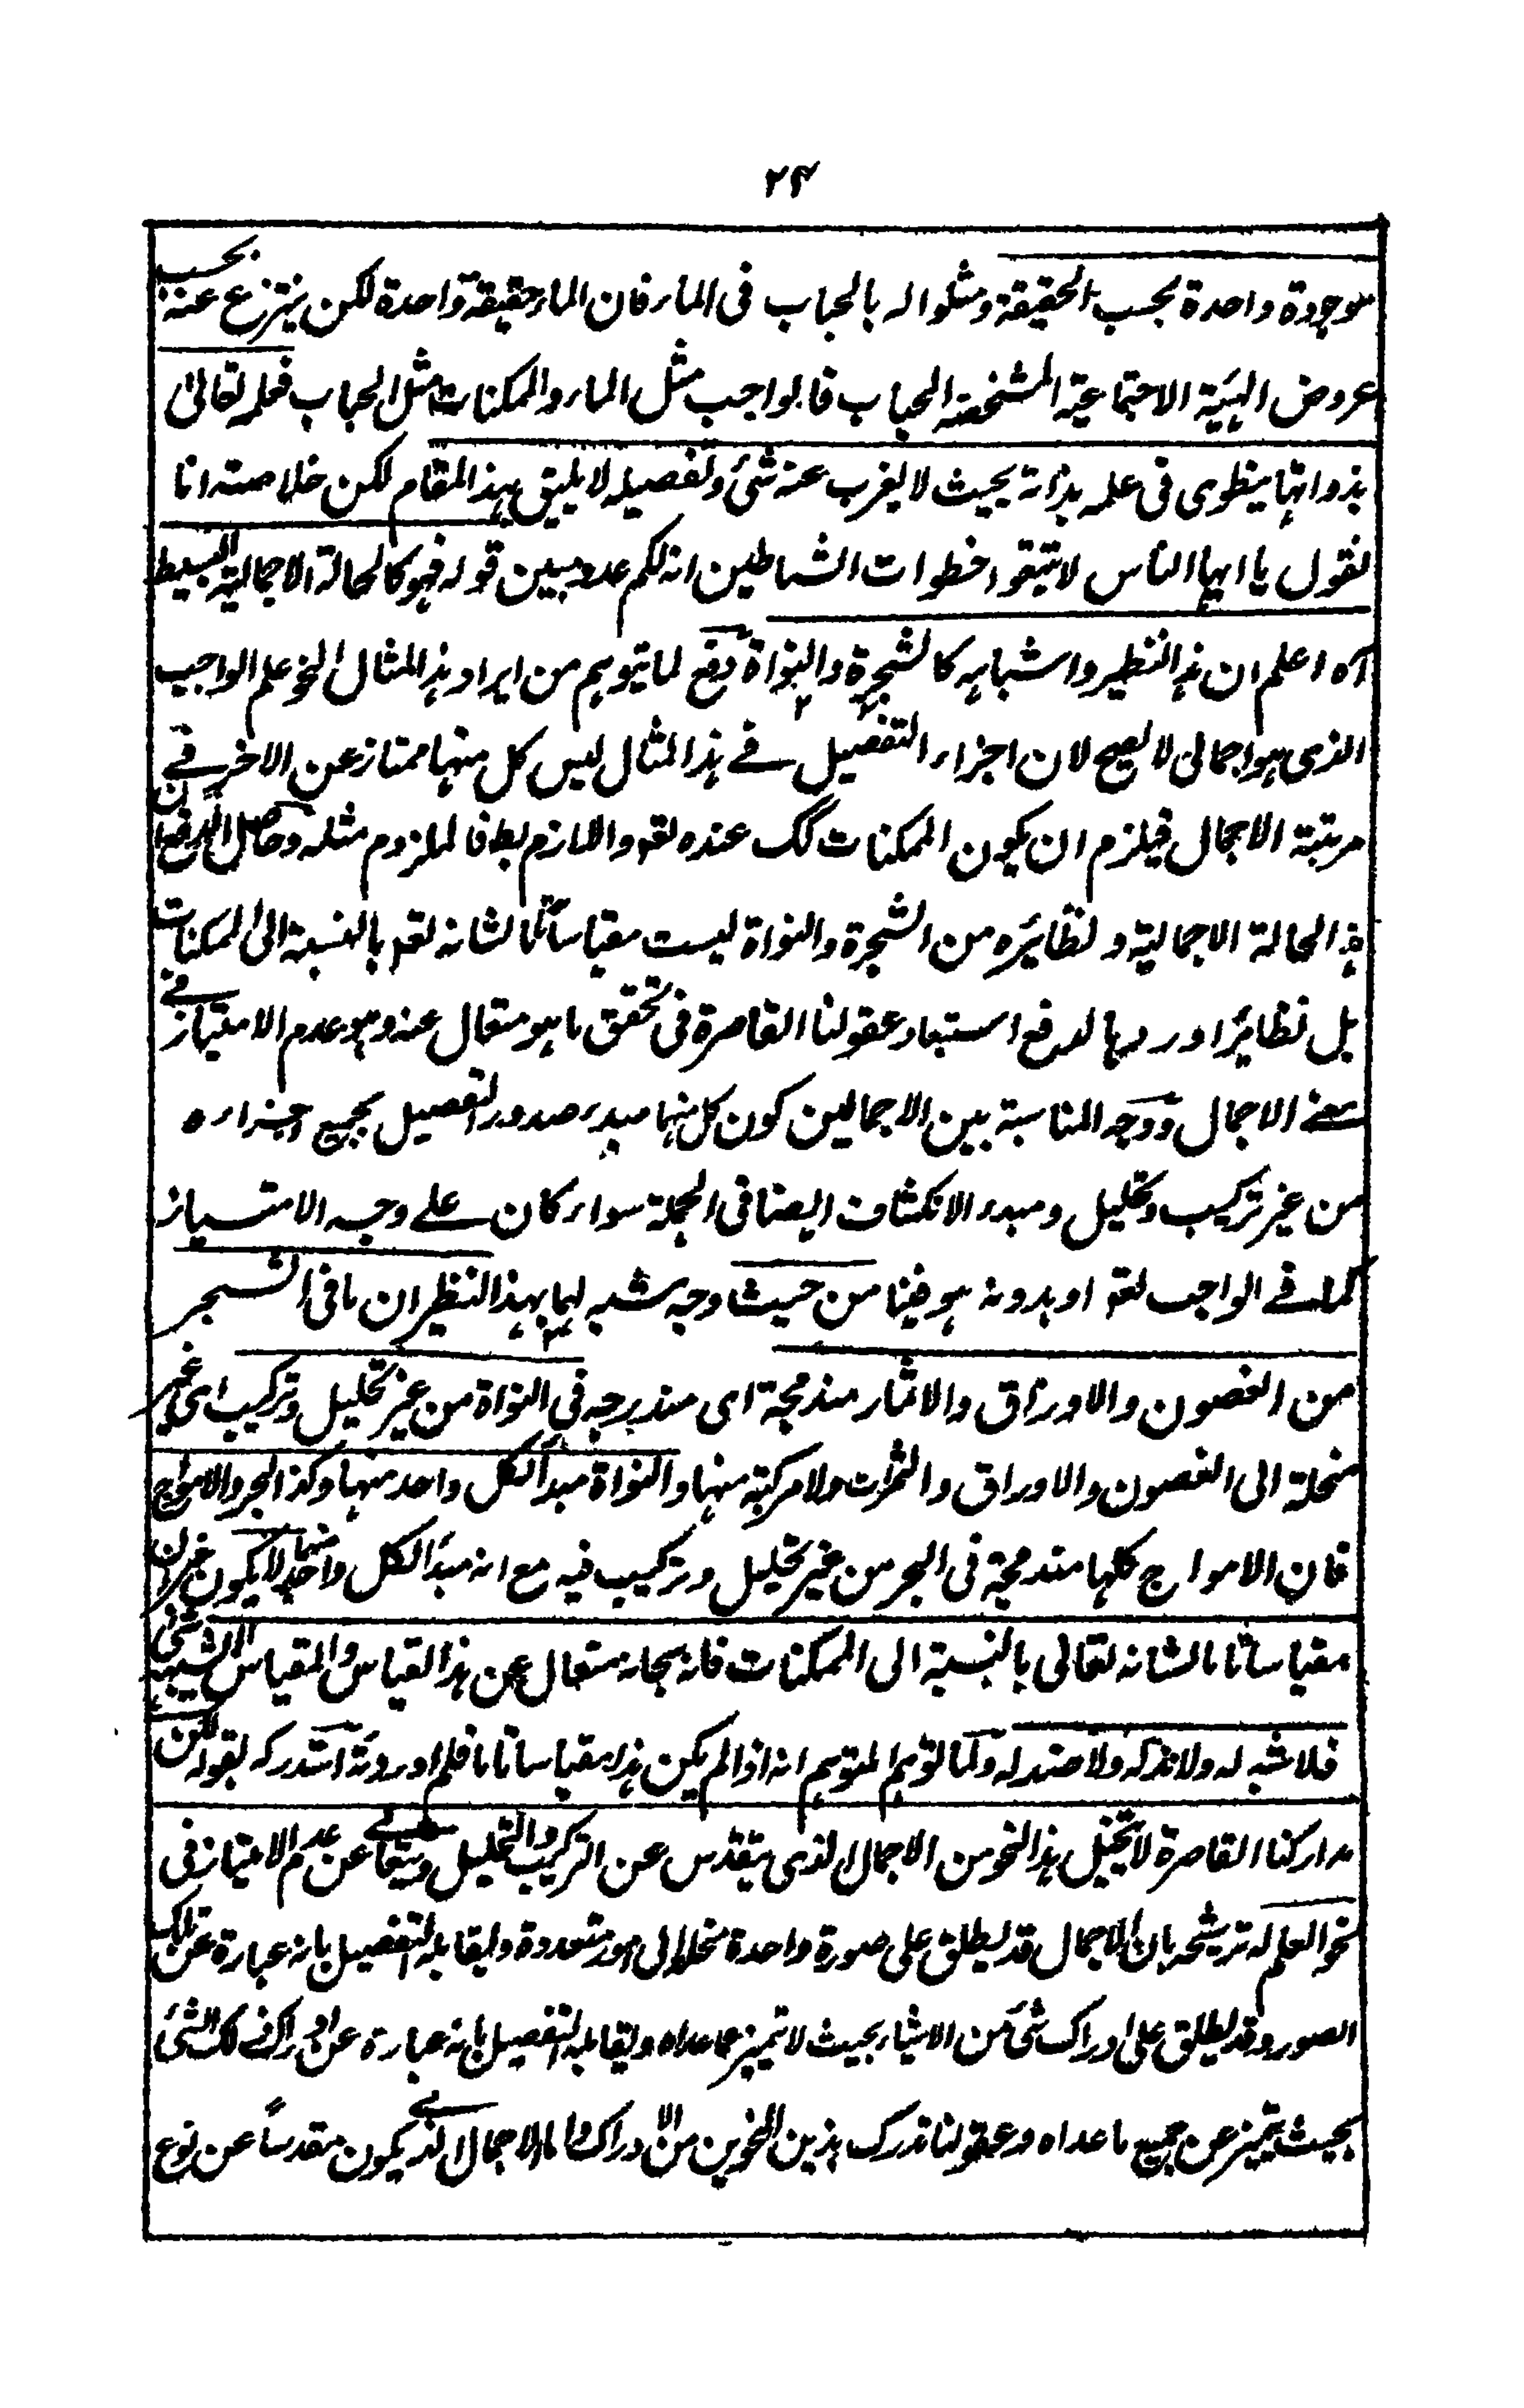 ۲۴
موجودة واحدة بحسب الحقيقة ومثلوا له بالحباب فى الماء فان الماء حقيقة واحدة لكن ينتزع عنه بحسب
عروض الهيئة الاجتماعية المشخصة الحباب فالواجب مثل الماء والممكنات مثل الحباب فعلمه تعالىٰ
بذواتها ينطوى فى علمه بذاته بحيث لا يعزب عنه شئ وتفصيله لا يليق بهذا المقام لكن خلاصته انا
نقول يا ايها الناس لا تتبعوا خطوات الشياطين انه لكم عدو مبين قوله فهو كالحالة الاجمالية البسيط
آه اعلم ان هذا النظير واشباهه كالشجرة والنواة دفع لما يتوهم من ايراد هذا المثال لنحو علم الواجب
الذى هو اجمالى لا يصح لان اجزاء التفصيل فے هذا المثال ليس كل منها ممتاز عن الاخر فے
مرتبة الاجمال فيلزم ان يكون الممكنات كك عنده تعه واللازم بط فالملزوم مثله وحاصل الدفع ان
هذا الحالة الاجمالية ونظائره من الشجرة والنواة ليست مقياسا تاما لشانه تعه بالنسبة الى الممكنات
بل نظائر اوردها لدفع استبعاد عقولنا القاصرة فى تحقق ما هو متعال عنه وهو عدم الامتياز فے
نحے الاجمال ووجه المناسبة بين الاجمالين كون كل منها مبدء صدور التفصيل بجميع اجزاءه
من غير تركيب وتحليل ومبدء الانكشاف ايضا فى الجملة سواء كان علے وجه الامتياز
كما فے الواجب تعه او بدونه هو فينا من حيث وجه شبه لها بهذا النظير ان ما فى الشجر
من الغصون والاوراق والاثمار مندمجة اى مندرجه فى النواة من غير تحليل وتركيب اى غير
منحلة الى الغصون والاوراق والثمرات ولا مركبة منها والنواة مبدأ لكل واحد منها وكذا البحر والامواج
فان الامواج كلها مندمجة فى البحر من غير تحليل وتركيب فيه مع انه مبدأ لكل واحد منها لا يكون غير ان
مقياسا تاما لشانه تعالى بالنسبة الى الممكنات فانه سبحانه متعال عن هذا القياس والمقياس التشبيهى
فلا شبه له ولا ند له ولا ضد له ولما توهم المتوهم انه اذا لم يكن هذا مقياسا تاما فلم اوردته استدركه بقوله لكن
مداركنا القاصرة لا تتخيل هذا النحو من الاجمال الذى يتقدس عن التركيب والتحليل ويتعالى عن عدم الامتياز فى
نحو العلم له ترشحه بان الاجمال قد يطلق على صورة واحدة منحلة الى امور متعددة ويقابله التفصيل بانه عبارة عن تلك
الصور وقد يطلق على ادراك شئ من الاشياء بحيث لا تتميز عما عداه ويقابله التفصيل بانه عبارة عن ادراك ذلك الشئ
بحيث يتميز عن جميع ما عداه وعقولنا تدرك بذين النحوين من الادراك واما الاجمال الذے يكون مقدسا عن نوع